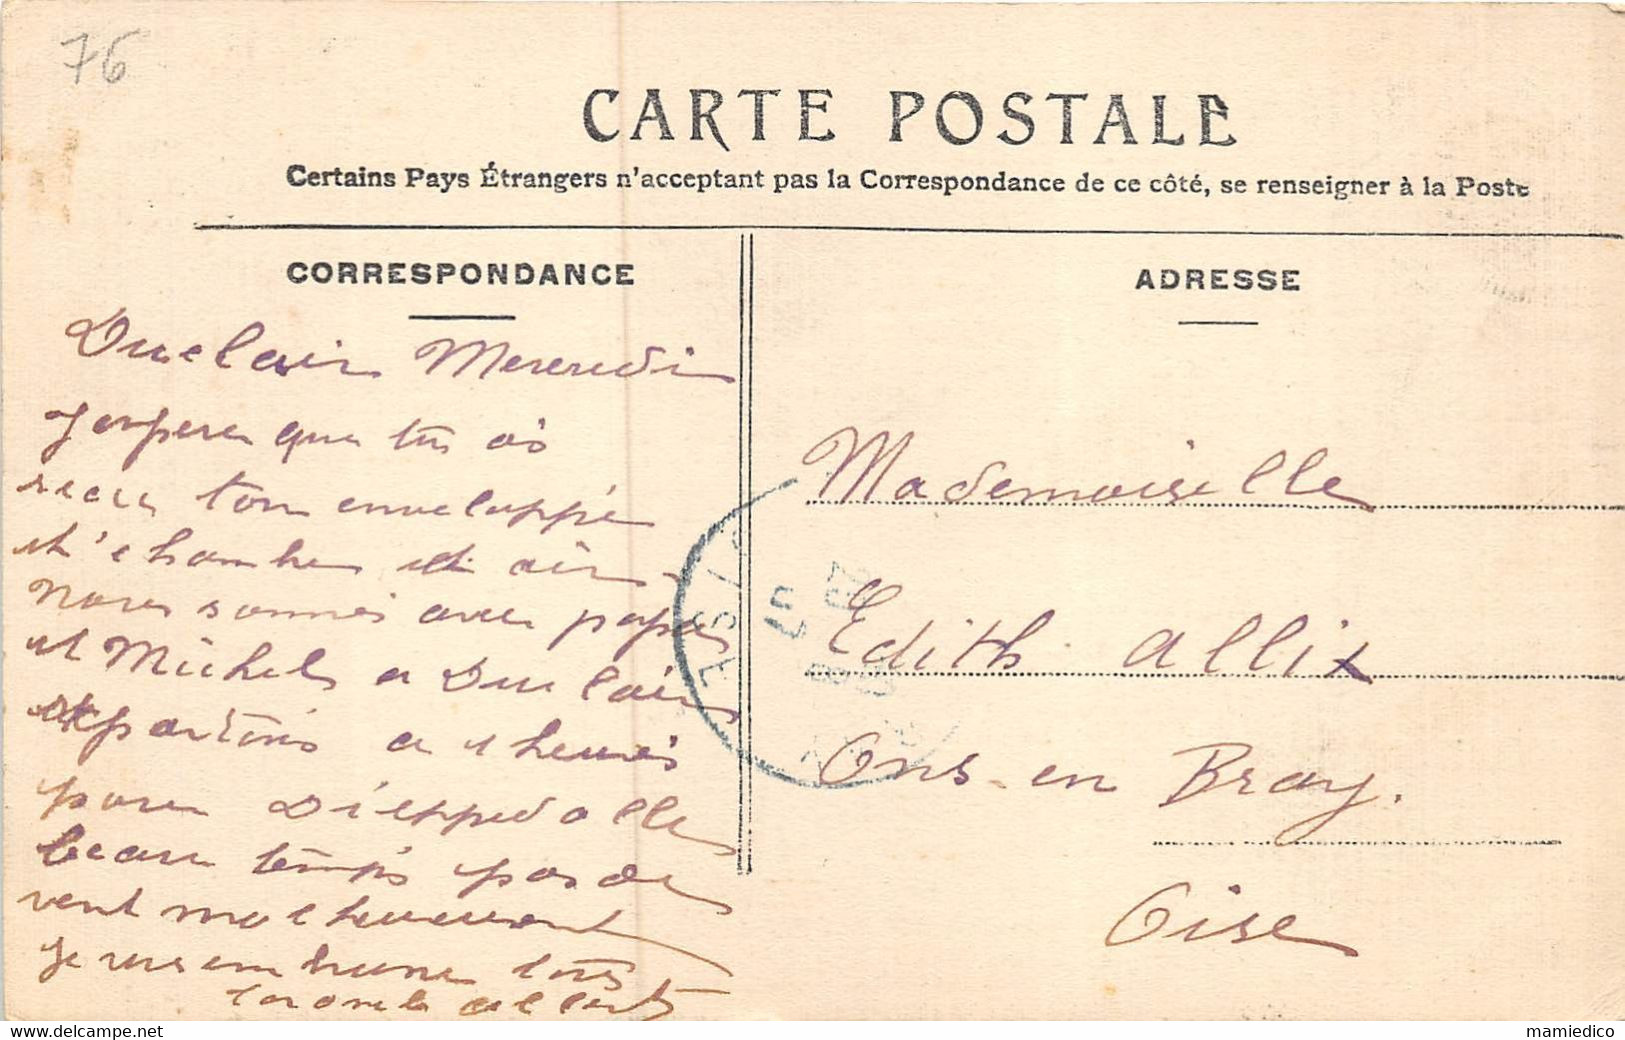 76
CARTE POSTALE
Certains Pays Étrangers n'acceptant pas la Correspondance de ce côté, se renseigner à la Poste
CORRESPONDANCE
Duclair Mercredi
J'espere que tu as
recu ton enveloppe
et chambre d air
Nous sommes avec papa
et Michel a Duclair
et partons a 1 heures
pour Dieppedalle
beau temps pas de
vent malheureusement
Je vous embrasse tous
ADRESSE
Mademoiselle
Edith Allix
Ons-en Bray.
Oise
mamiedico